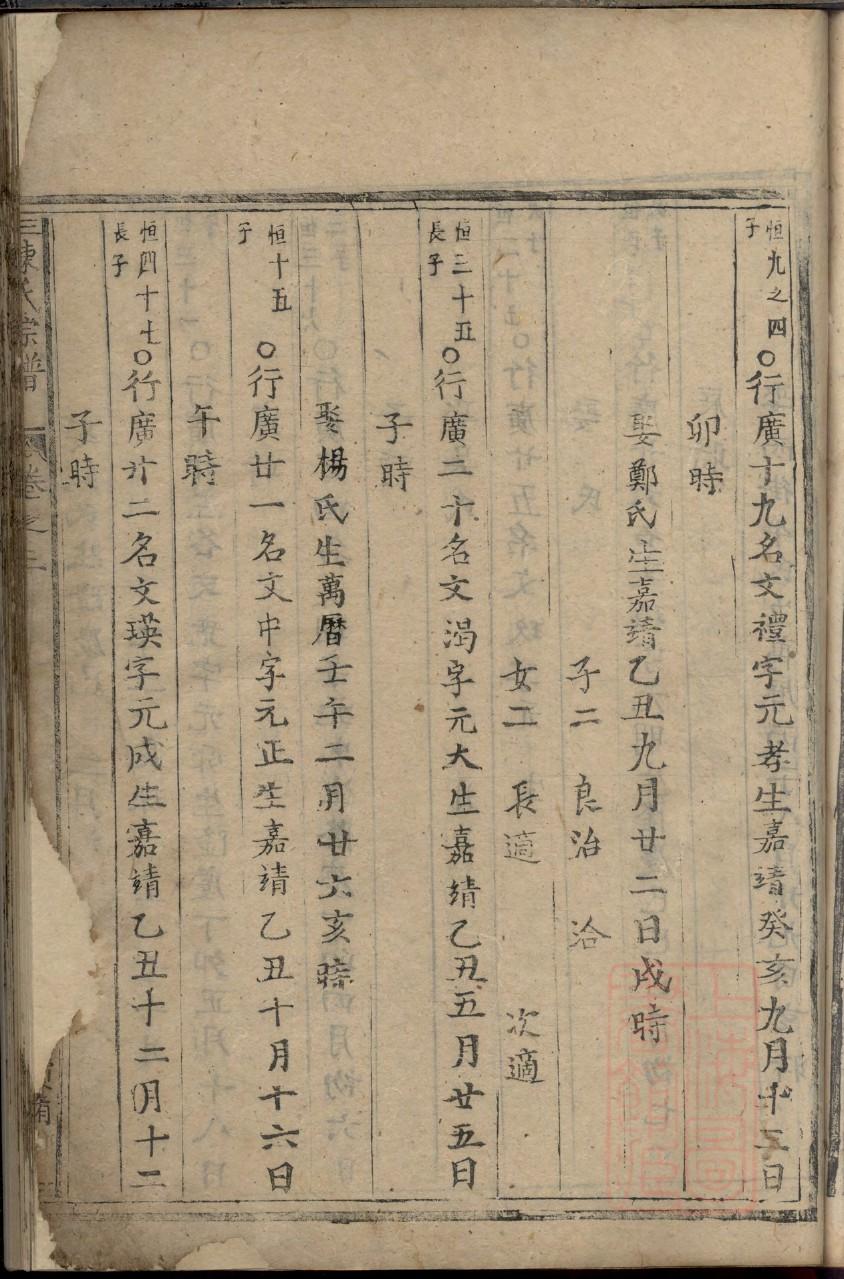 恒九之四子○行廣十九名文禮字元孝生嘉靖癸亥九月十二日
卯時
娶鄭氏生嘉靖乙丑九月廿二日戌時
子二 良治 洽
女二 長適 次適
恒三十五長子○行廣二十名文渴字元大生嘉靖乙丑五月廿五日
子時
娶楊氏生萬曆壬午二月廿六亥時
恒十五子○行廣廿一名文中字元正生嘉靖乙丑十月十六日
午時
恒四十七長子○行廣廿二名文瑛字元成生嘉靖乙丑十二月十二
子時
陳氏宗譜 卷之二